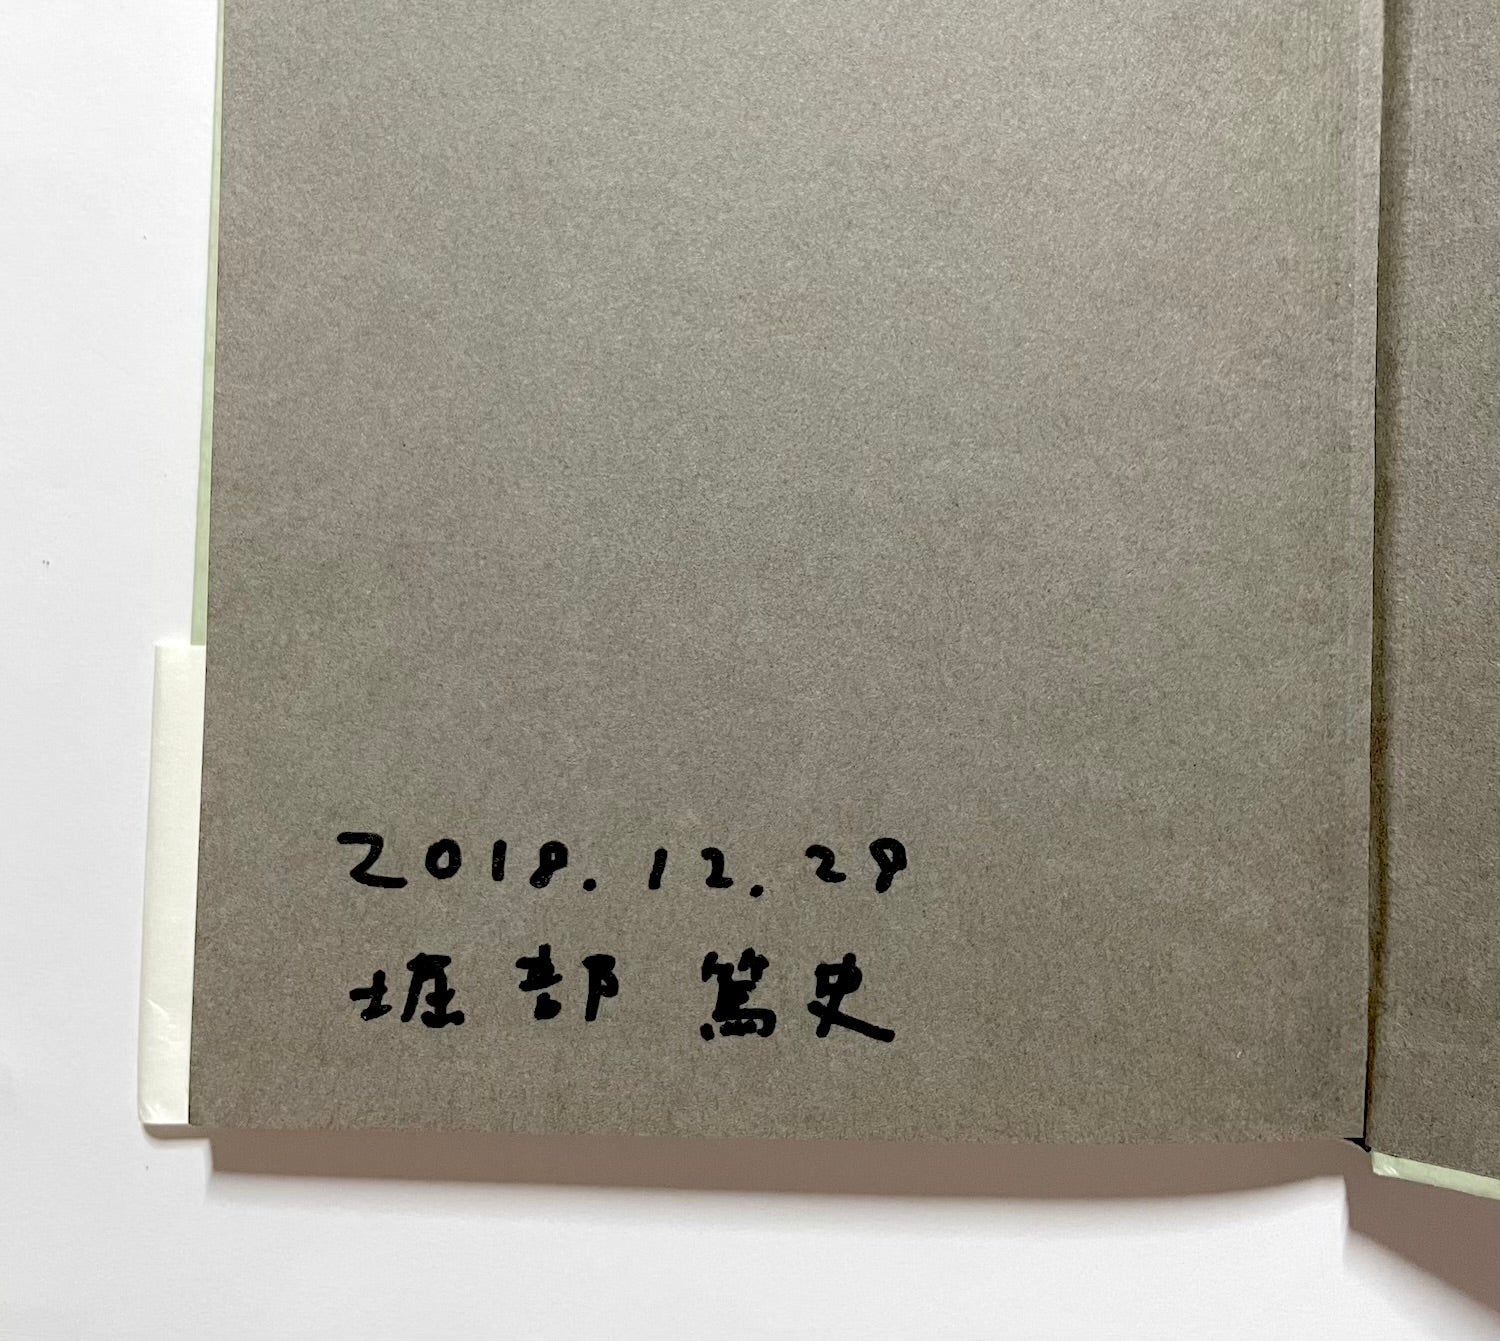 2018.12.28
堀部 篤史